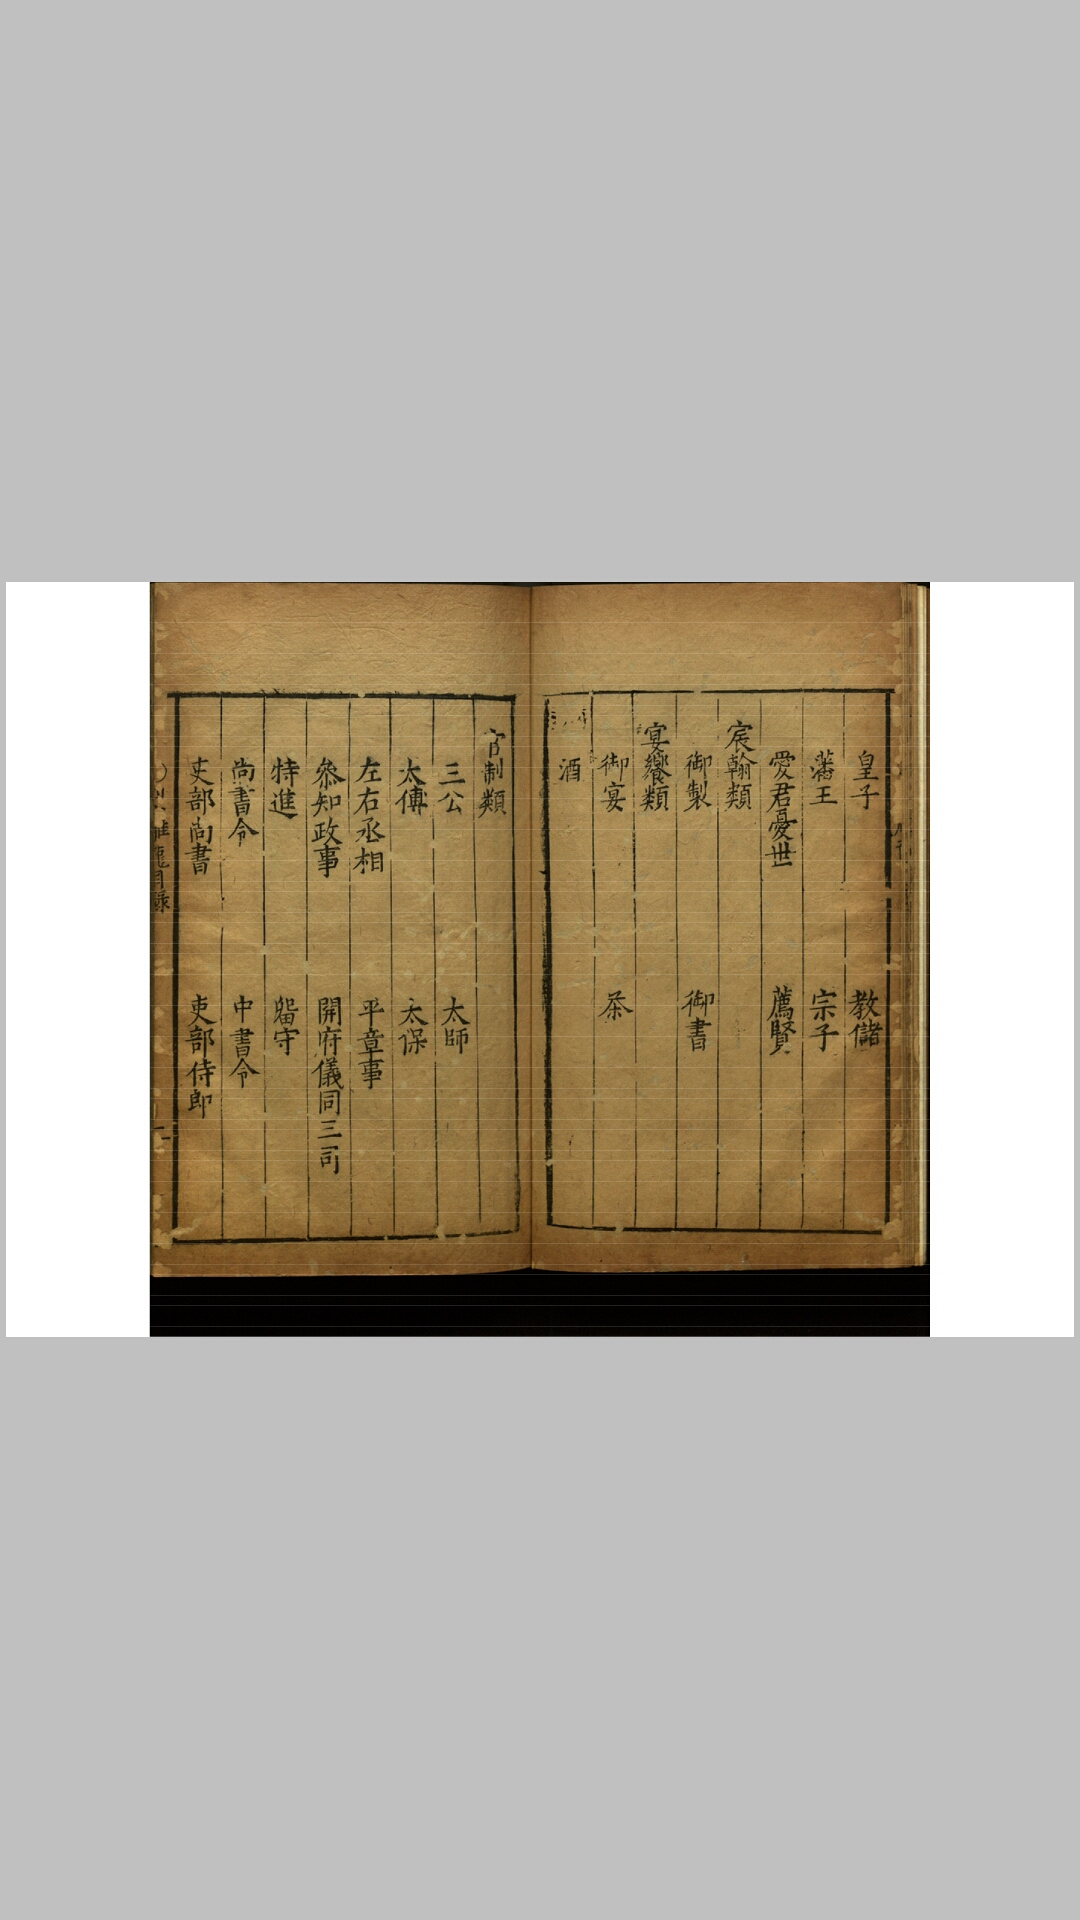 皇子　教儲
藩王　宗子
愛君憂世　薦賢
宸翰類
御製　御書
宴饗類
御宴　茶
酒
官制類
三公　太師
太傅　太保
左右丞相　平章事
叅知政事　開府儀同三司
特進　畱守
尚書令　中書令
吏部尚書　吏部侍郎
目録